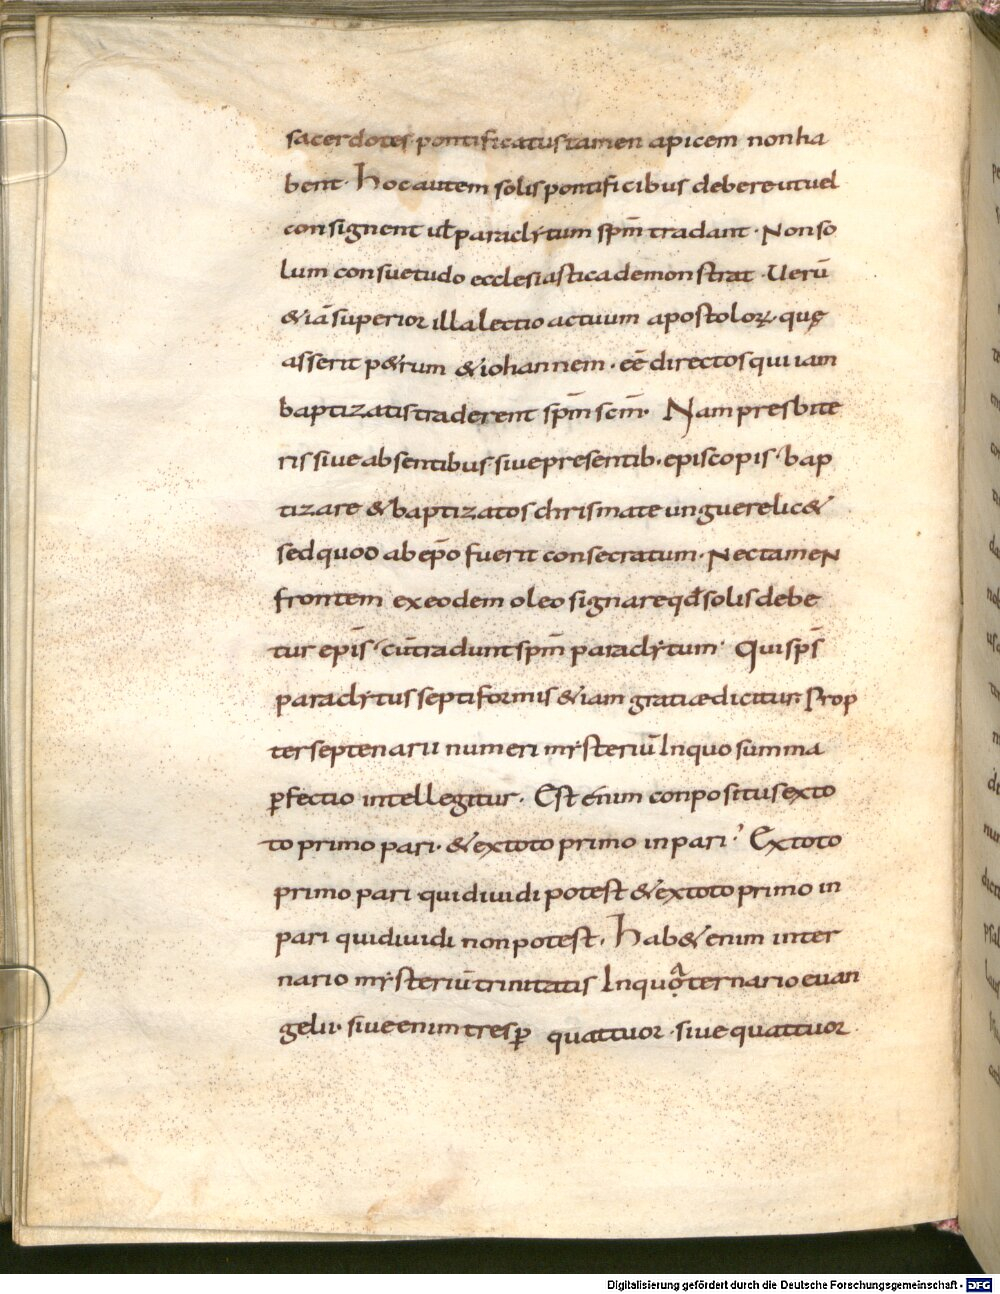 sacerdotes pontificatus tamen apicem non ha
bent. Hoc autem solis pontificibus debere ut uel
consignent ul̄ paraclytum sp̄m tradant. Non so
lum consuetudo ecclesiastica demonstrat. Uerū
& iā superior illa lectio actuum apostoloꝝ. quę
asserit p&rum & iohannem. eē directos qui iam
baptizatis traderent sp̄m sc̄m. Nam presbite
ris siue absentibus siue presentib. episcopis bap
tizare & baptizatos chrismate unguere lic&
sed quod ab ep̄o fuerit consecratum. Nec tamen
frontem ex eodem oleo signare qd̄ solis debe
tur epīs cū tradunt sp̄m paraclytum. Qui sp̄s
paraclytus septiformis &iam gratiæ dicitur. Prop
ter septenarii numeri mysteriū In quo summa
ꝑfectio intellegitur. Est enim conpositus ex to
to primo pari. & ex toto primo inpari. Ex toto
primo pari qui diuidi potest & ex toto primo in
pari qui diuidi non potest. Hab& enim in ter
nario mysteriū trinitatis In quaternario euan
gelii. siue enim tres ꝑ quattuor. siue quattuor
Digitalisierung gefördert durch die Deutsche Forschungsgemeinschaft - DFG